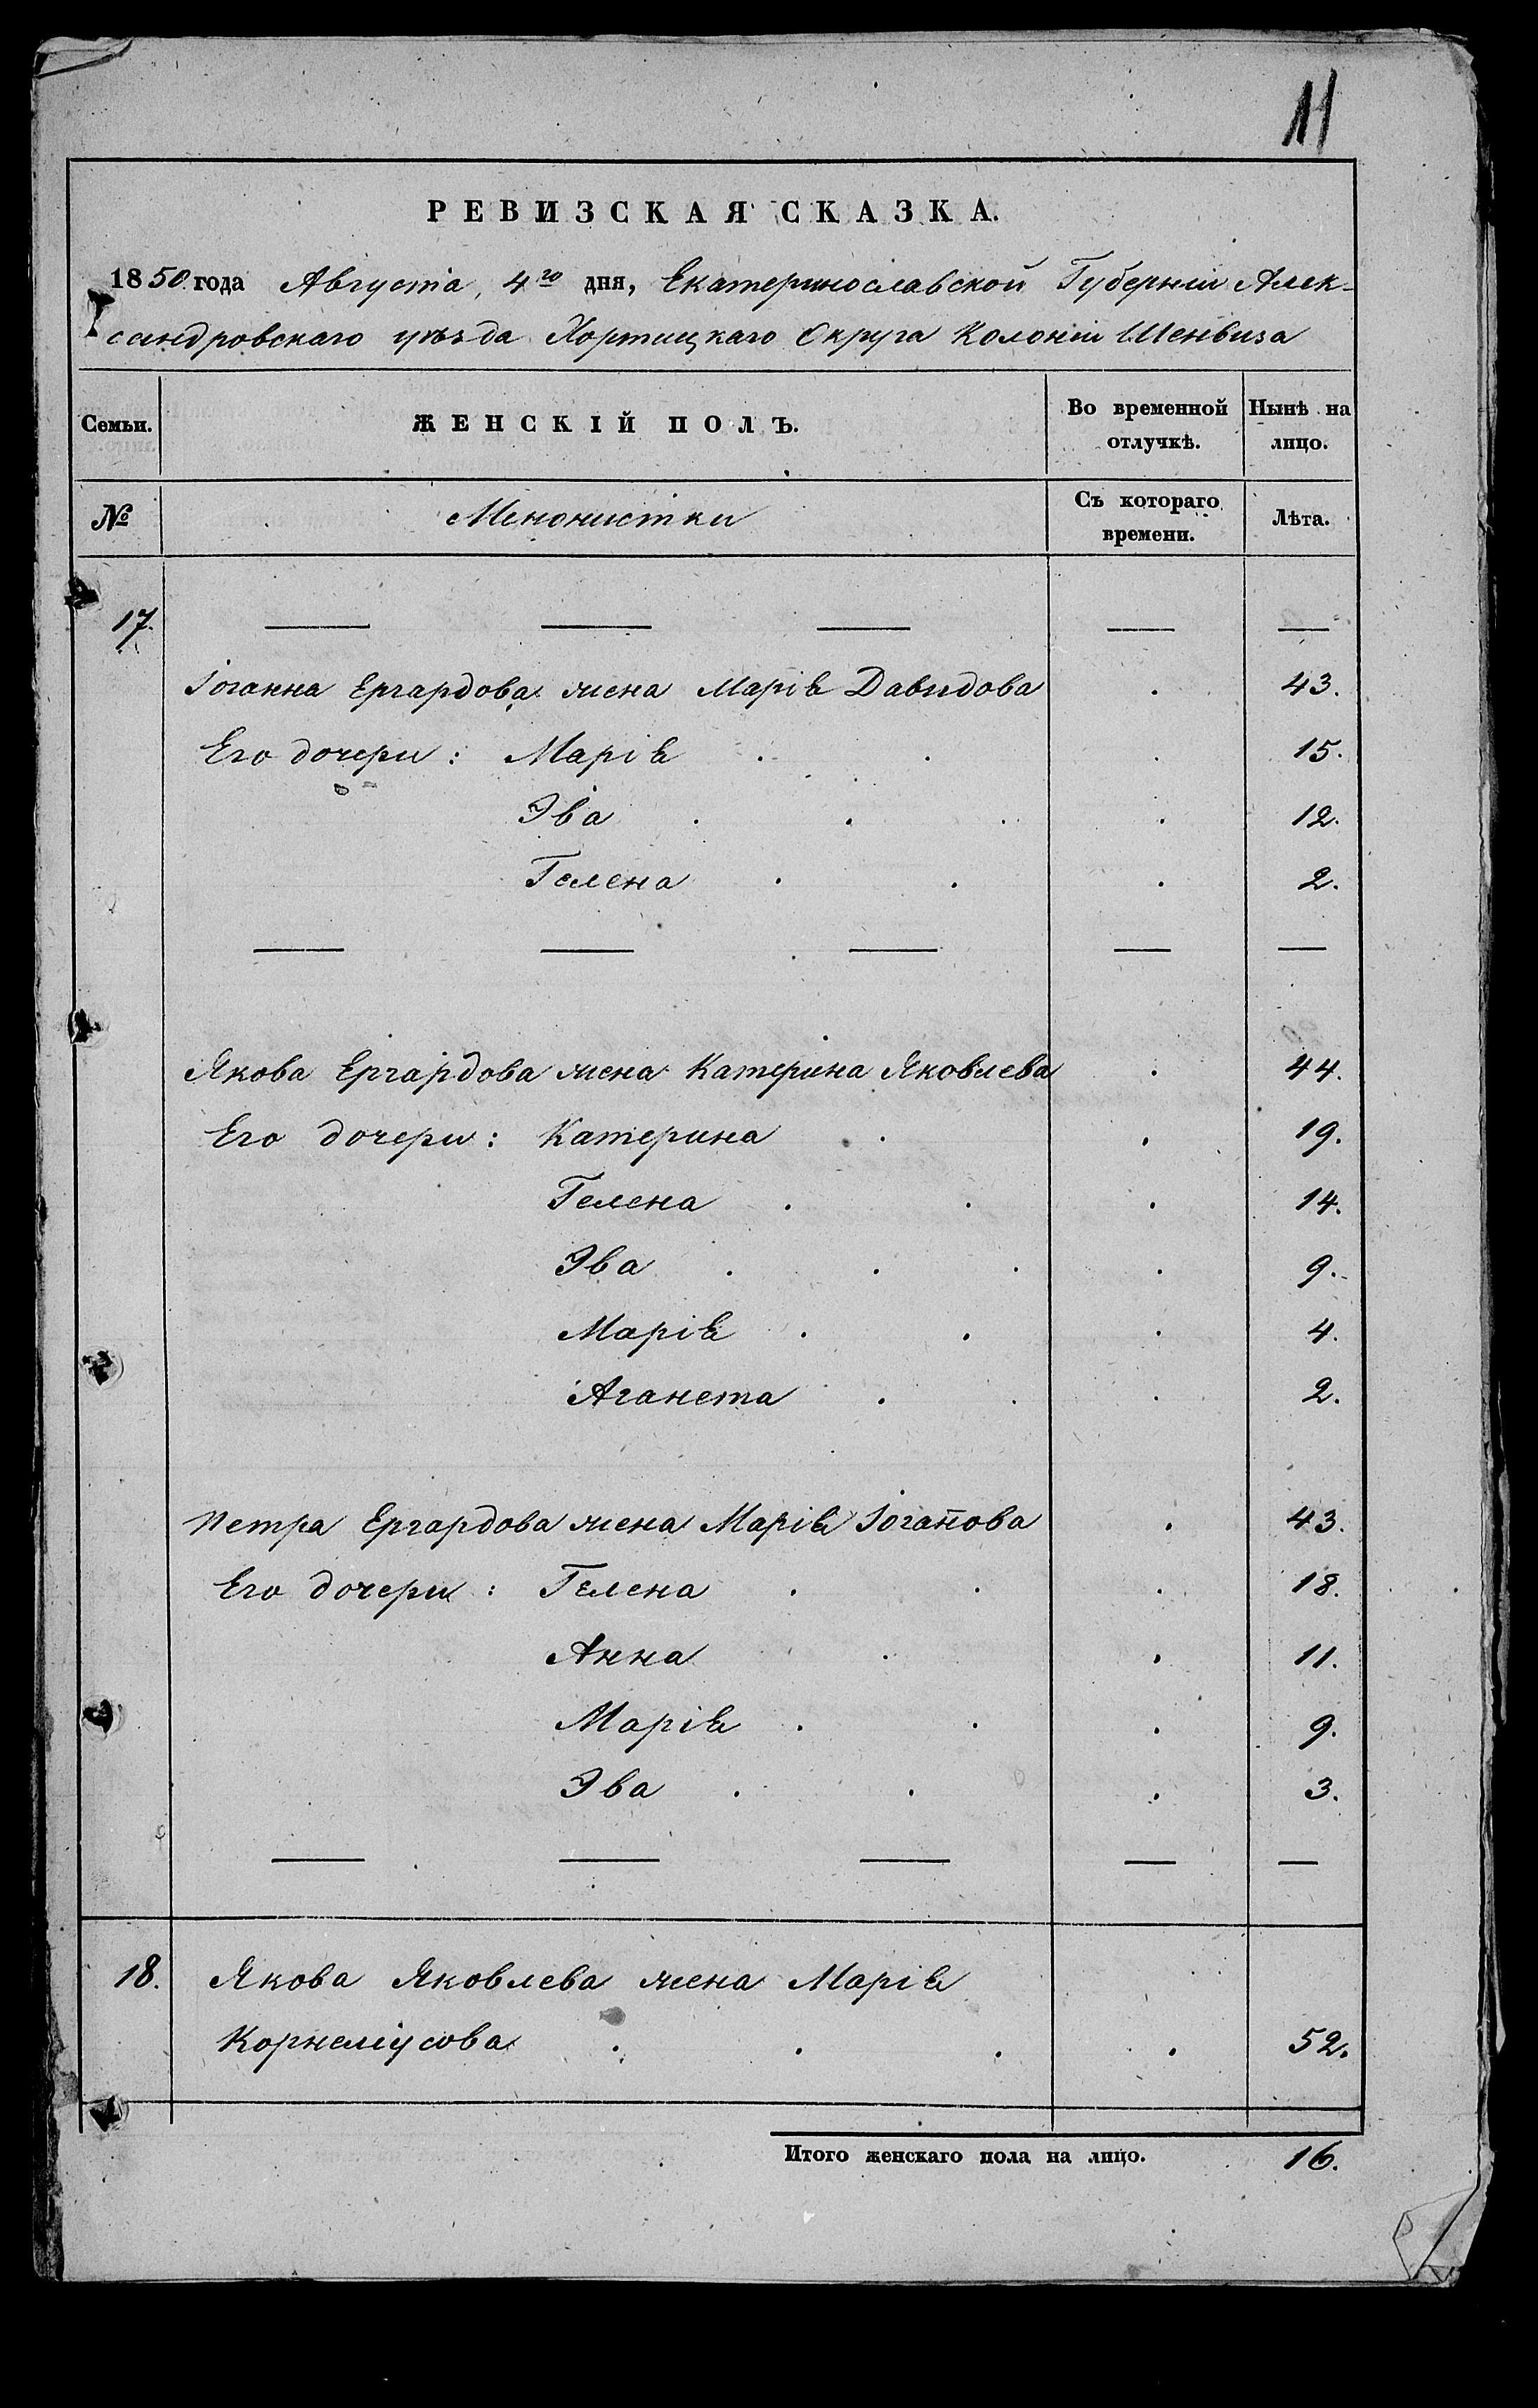 11
РЕВИЗСКАЯ СКАЗКА.
1850 года Августа, 4го дня, Екатеринославской Губернiи Алек-
сандровскаго уѣзда Хортицкаго Округа Колонiи Шенвиза
Семьи. ЖЕНСКІЙ ПОЛЪ. Во временной отлучкѣ. Нынѣ на лицо.
№ Менонистки Съ котораго времени. Лѣта.
17.
Iоганна Ергардова жена Марiя Давидова 43.
Его дочери: Марiя 15.
Эва 12.
Гелена 2.
Якова Ергардова жена Катерина Яковлева 44.
Его дочери: Катерина 19.
Гелена 14.
Эва 9.
Марiя 4.
Аганета 2.
Петра Ергардова жена Марiя Iоган̄ова 43.
Его дочери: Гелена 18.
Анна 11.
Марiя 9.
Эва 3.
18. Якова Яковлева жена Марiя
Корнелiусова 52.
Итого женскаго пола на лицо. 16.